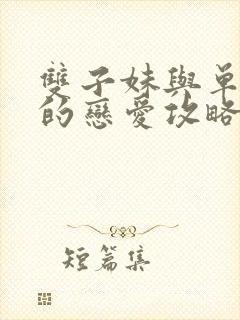 雙子妹與單
的戀愛攻略
短篇集